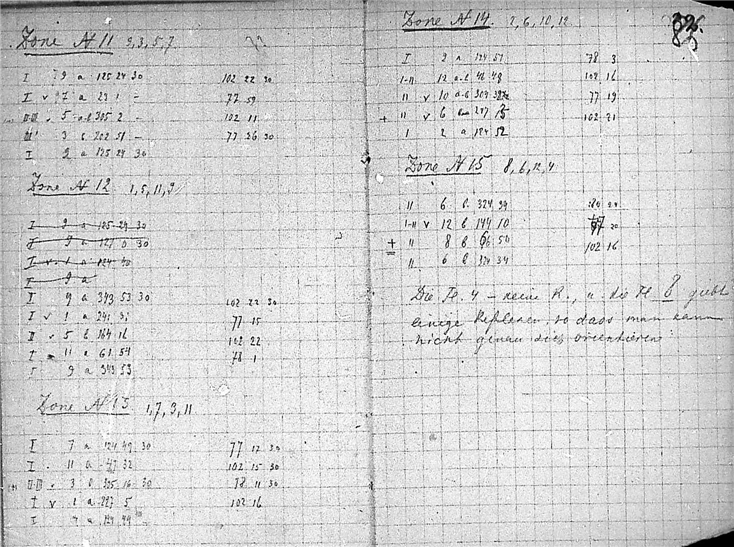 Zone № 11 3, 3, 5, 7
I 9 a 125 24 30 102 22 30
I v 7 a 23 1 – 77 59
II-III v 5 a-b 305 2 – 102 11
III 3 b 202 51 – 77 26 30
I 9 a 125 24 30
Zone № 12 1, 5, 11, 9
I 9 a 125 29 30
I 9 a 127 0 30
I v 1 a 124 30
I 9 a
I 9 a 343 53 30 102 22 30
I v 1 a 241 77 15
II v 5 b 164 16 102 22
I 11 a 61 54 78 1
I 9 a 343 53
Zone № 13 1, 7, 3, 11
I 7 a 124 49 30 77 17 30
I 11 a 47 32 102 15 30
II-III v 3 b 305 16 30 78 11 30
I v 1 a 227 5 102 16
I 7 a 124 49
Zone № 14 2, 6, 10, 12
I 2 a 124 51 78 3
I-II 12 a-b 46 48 102 16
II v 10 a-b 304 77 19
+ II v 6 247 15 102 21
I 2 a 124 52
Zone № 15 8, 6, 12, 4
II 6 b 324 34 80 24
I-II v 12 b 144 10 77 20
+ II 8 b 66 50 102 16
II 6 b 324 34
Die Fl. 4 – keine R., u. die Fl. 8 giebt
einige Reflexen, so dass man kann
nicht genau dies orientieren